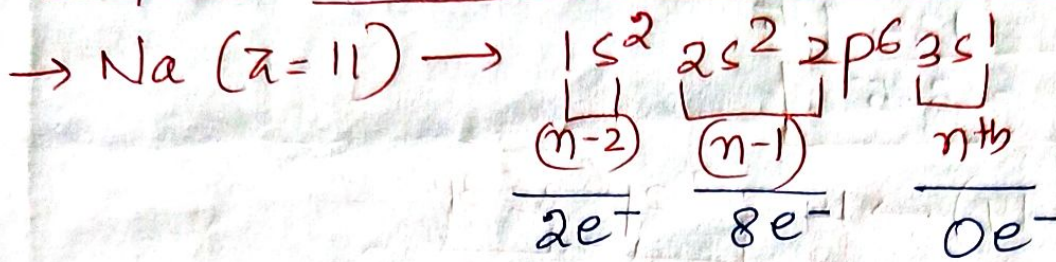 → Na (z = 11) → 1s² 2s² 2p⁶ 3s¹
(n-2) (n-1) nth
2e⁻ 8e⁻ 0e⁻